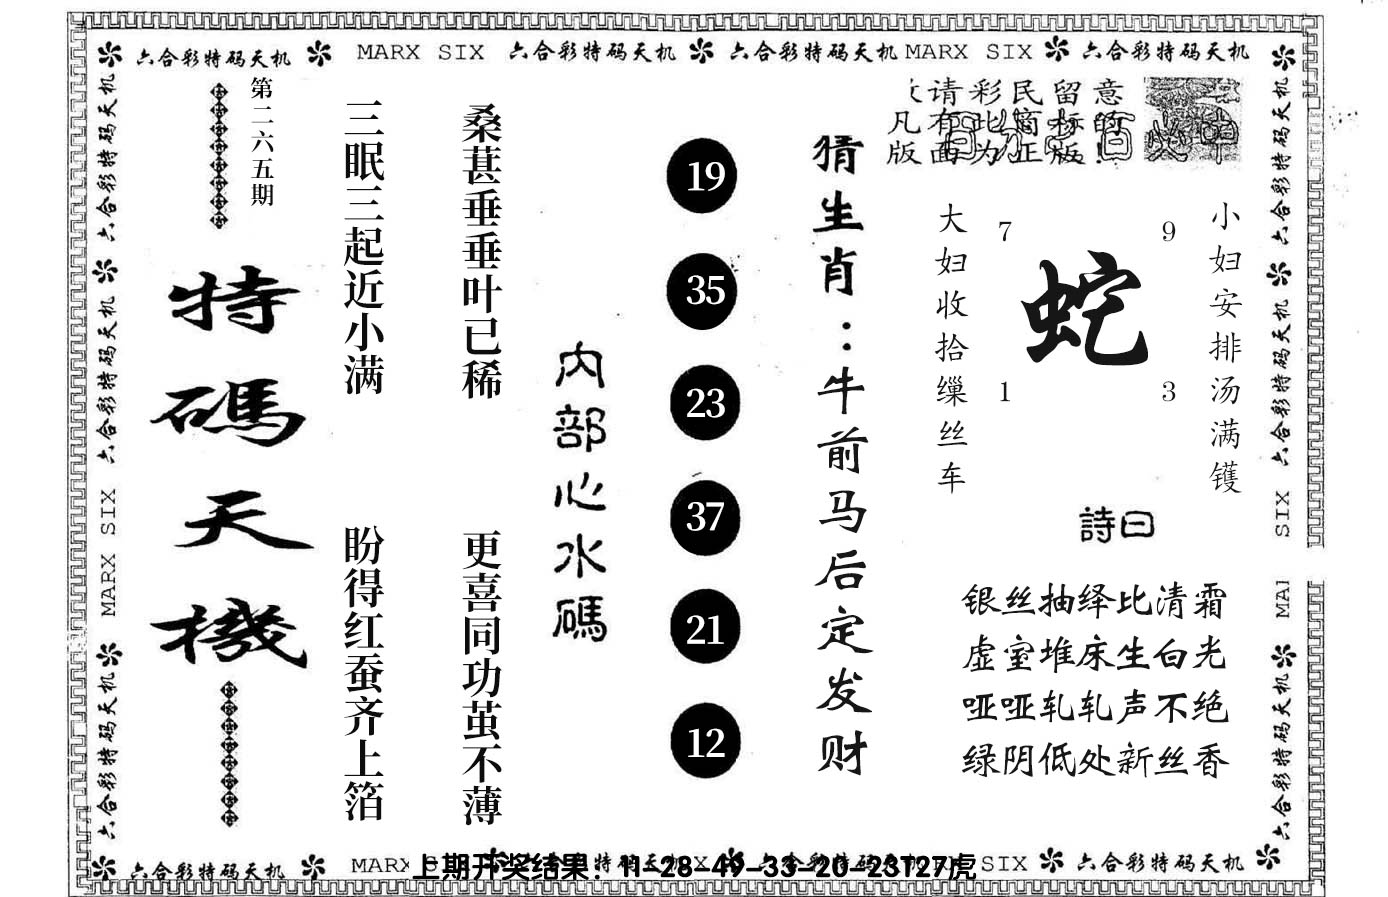 六合彩特码天机 MARX SIX 六合彩特码天机 六合彩特码天机 MARX SIX 六合彩特码天机
第二六五期
特碼天機
三眠三起近小满
盼得红蚕齐上箔
桑葚垂垂叶已稀
更喜同功茧不薄
内部心水碼
19
35
23
37
21
12
猜生肖：牛前马后定发财
请彩民留意
凡有此商标的
版面为正版!
大妇收拾缫丝车
7
9
蛇
1
3
小妇安排汤满镬
詩曰
银丝抽绎比清霜
虚室堆床生白光
哑哑轧轧声不绝
绿阴低处新丝香
六合彩特码天机 MARX SIX 六合彩特码天机
六合彩特码天机 六合彩特码天机 SIX MAR 六合彩特码天机
六合彩特码天机 MARX SIX 六合彩特码天机
上期开奖结果：11-28-49-33-20-23T27虎